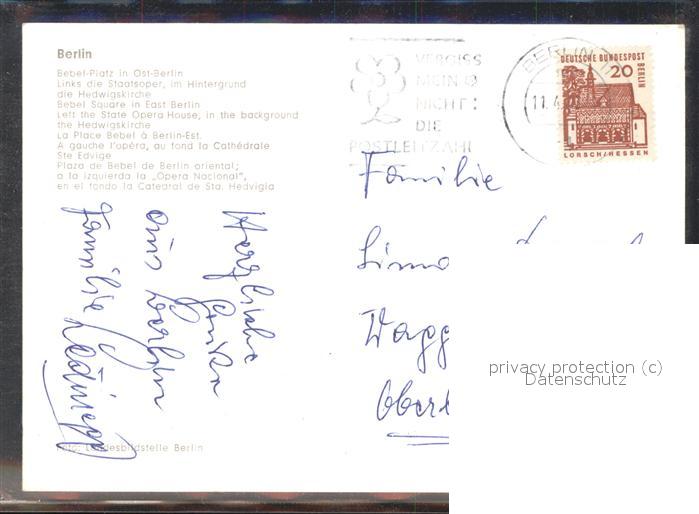 Berlin
Bebel-Platz in Ost-Berlin
Links die Staatsoper, im Hintergrund
die Hedwigskirche
Bebel Square in East Berlin
Left the State Opera House; in the background
the Hedwigskirche
La Place Bebel à Berlin-Est.
A gauche l'opéra, au fond la Cathédrale
Ste Edvige
Plaza de Bebel de Berlin oriental;
a la izquierda la „Opera Nacional",
en el fondo la Catedral de Sta. Hedvigia
VERGISS
MEIN
NICHT:
DIE
POSTLEITZAHL
BERLIN
11.4
DEUTSCHE BUNDESPOST
BERLIN
20
LORSCH/HESSEN
Familie
Herzliche
Grüße
aus Berlin
Familie
privacy protection (c)
Datenschutz
Foto: Landesbildstelle Berlin